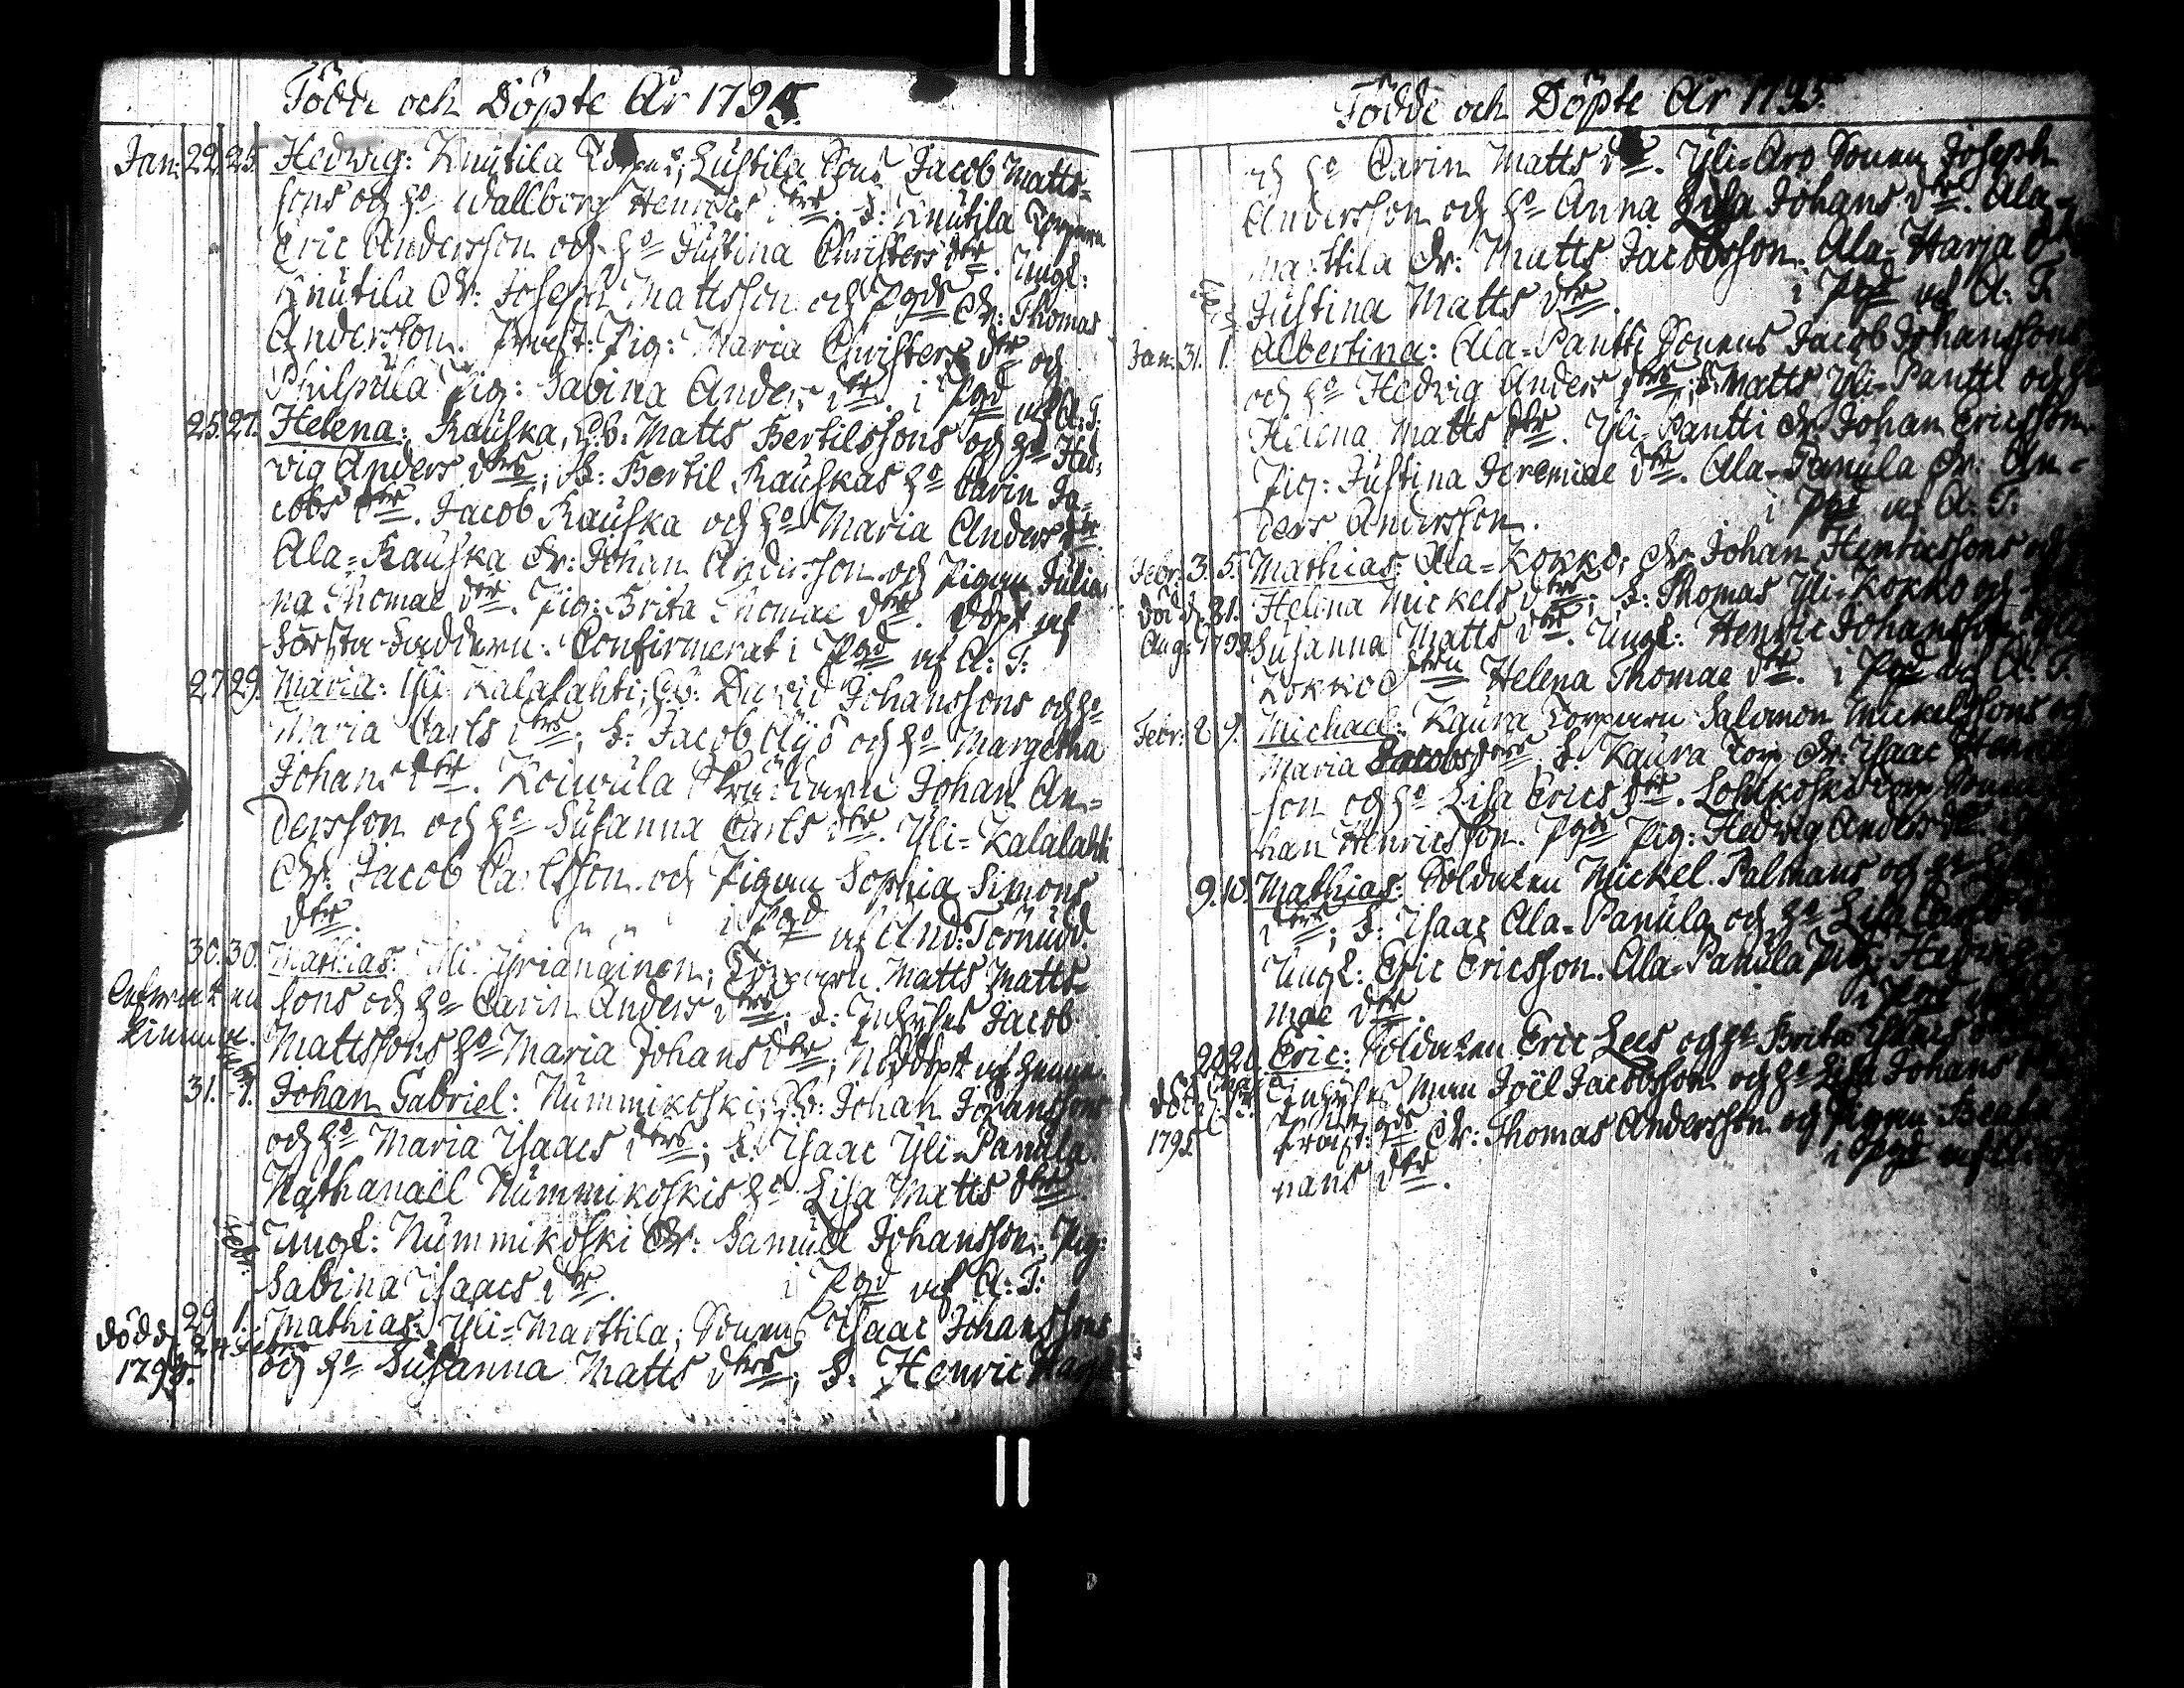 Födde och Döpte År 1795.
Jan: 22. 25. Hedwig: Knutila Torp: Lustila Sons Jacob Matts-
sons och h:o Wallborg Henrics d:trs. F: Knutila Torparn
Eric Andersson och h:o Justina Christers d:tr. Ungl:
Knutila Dr: Joseph Mattsson och Pgds Dr: Thomas
Andersson. Prost: Pig: Maria Christers d:tr och
Philpula Pig: Sabina Anders d:tr. i Pgd af A: T.
25. 27. Helena: Rauska, L.B: Matts Bertilssons och h:o Hed-
vig Anders d:trs; F: Bertil Rauskas h:o Carin Ja-
cobs d:tr. Jacob Rauska och h:o Maria Anders d:tr.
Ala-Rauska Dr: Johan Andersson och Pigan Julia-
na Thomae d:tr. Pig: Brita Thomae d:tr. Döpt af
första Faddern. Confirmerat i Pgd af A: T:
27. 29. Maria: Yli-Kalalahti; L.B: David Johanssons och h:o
Maria Carls d:trs; F: Jacob Äijö och h:o Margetha
Johans d:tr. Koivula Johan An-
dersson och h:o Susanna Carls d:tr. Yli-Kalalahti
Dr: Jacob Carlsson och Pigan Sophia Simons
d:tr. i Pgd af And: Törnudd.
30. 30. Mathias: Yli-Yrjänäinen; Torparn Matts Matts-
sons och h:o Carin Anders d:trs; F: Inhyses Jacob
Mattssons h:o Maria Johans d:tr; Nöddöpt af henne.
31. 1. Johan Gabriel: Nummikoski; L.B: Johan Johanssons
och h:o Maria Isaacs d:trs; F: Isaac Yli-Panula.
Nathanaël Nummikoskis h:o Lisa Matts d:tr
Ungl: Nummikoski Dr: Samuel Johansson; Pig:
Febr:
Sabina Isaacs d:tr. i Pgd af A: T:
29. 1. Mathias: Yli-Marttila; Sonens Isaac Johanssons
död d. 24 Febr:
1795.
och h:o Susanna Matts d:trs; F: Henric
Födde och Döpte År 1795.
och h:o Carin Matts d:tr. Yli-Aro Sonen Joseph
Andersson och h:o Anna Lisa Johans d:tr. Ala-
Marttila Dr: Matts Jacobsson. Ala-Harja
Justina Matts d:tr. i Pgd af A: T.
Jan: 31. 1. Albertina: Ala-Pantti Sonens Jacob Johanssons
och h:o Hedwig Anders d:trs; F: Matts Yli-Pantti och h:o
Helena Matts d:tr. Yli-Pantti Dr: Johan Ericsson.
Pig: Justina Jeremiae d:tr. Ala-Panula Dr: An-
ders Andersson. i Pgd af A: T.
Febr: 3. 5. Mathias: Ala-Kokko; Dr: Johan Henricssons och
död d. 31. Helena Mickels d:trs; F: Thomas Yli-Kokko och
Aug: 1799. Susanna Matts d:tr. Ungl: Henric Johansson
Kokko Helena Thomae d:tr. i Pgd af A: T.
Febr: 8. 9. Michael: Kaura Torparn Salomon Mickelssons och
Maria Jacobs d:trs. F: Kaura Torp Dr: Isaac
son och h:o Lisa Erics d:tr. Lohikoski Torp Sonen
han Henricsson. Pgds Pig: Hedwig Anders d:tr
9. 10. Mathias: Soldaten Mickel Palmans och h:o
d:trs; F: Isaac Ala-Panula och h:o Lisa
Ungl: Eric Ericsson. Ala-Panula Pig: Hedwig
mae d:tr. i Pgd
20. 20. Eric: Soldaten Eric Lees och h:o Brita
död
1795.
Inhyses Man Joël Jacobsson och h:o Lisa Johans
Prost: Pgds Dr: Thomas Andersson och Pigan Beata
hans d:tr. i Pgd af A: